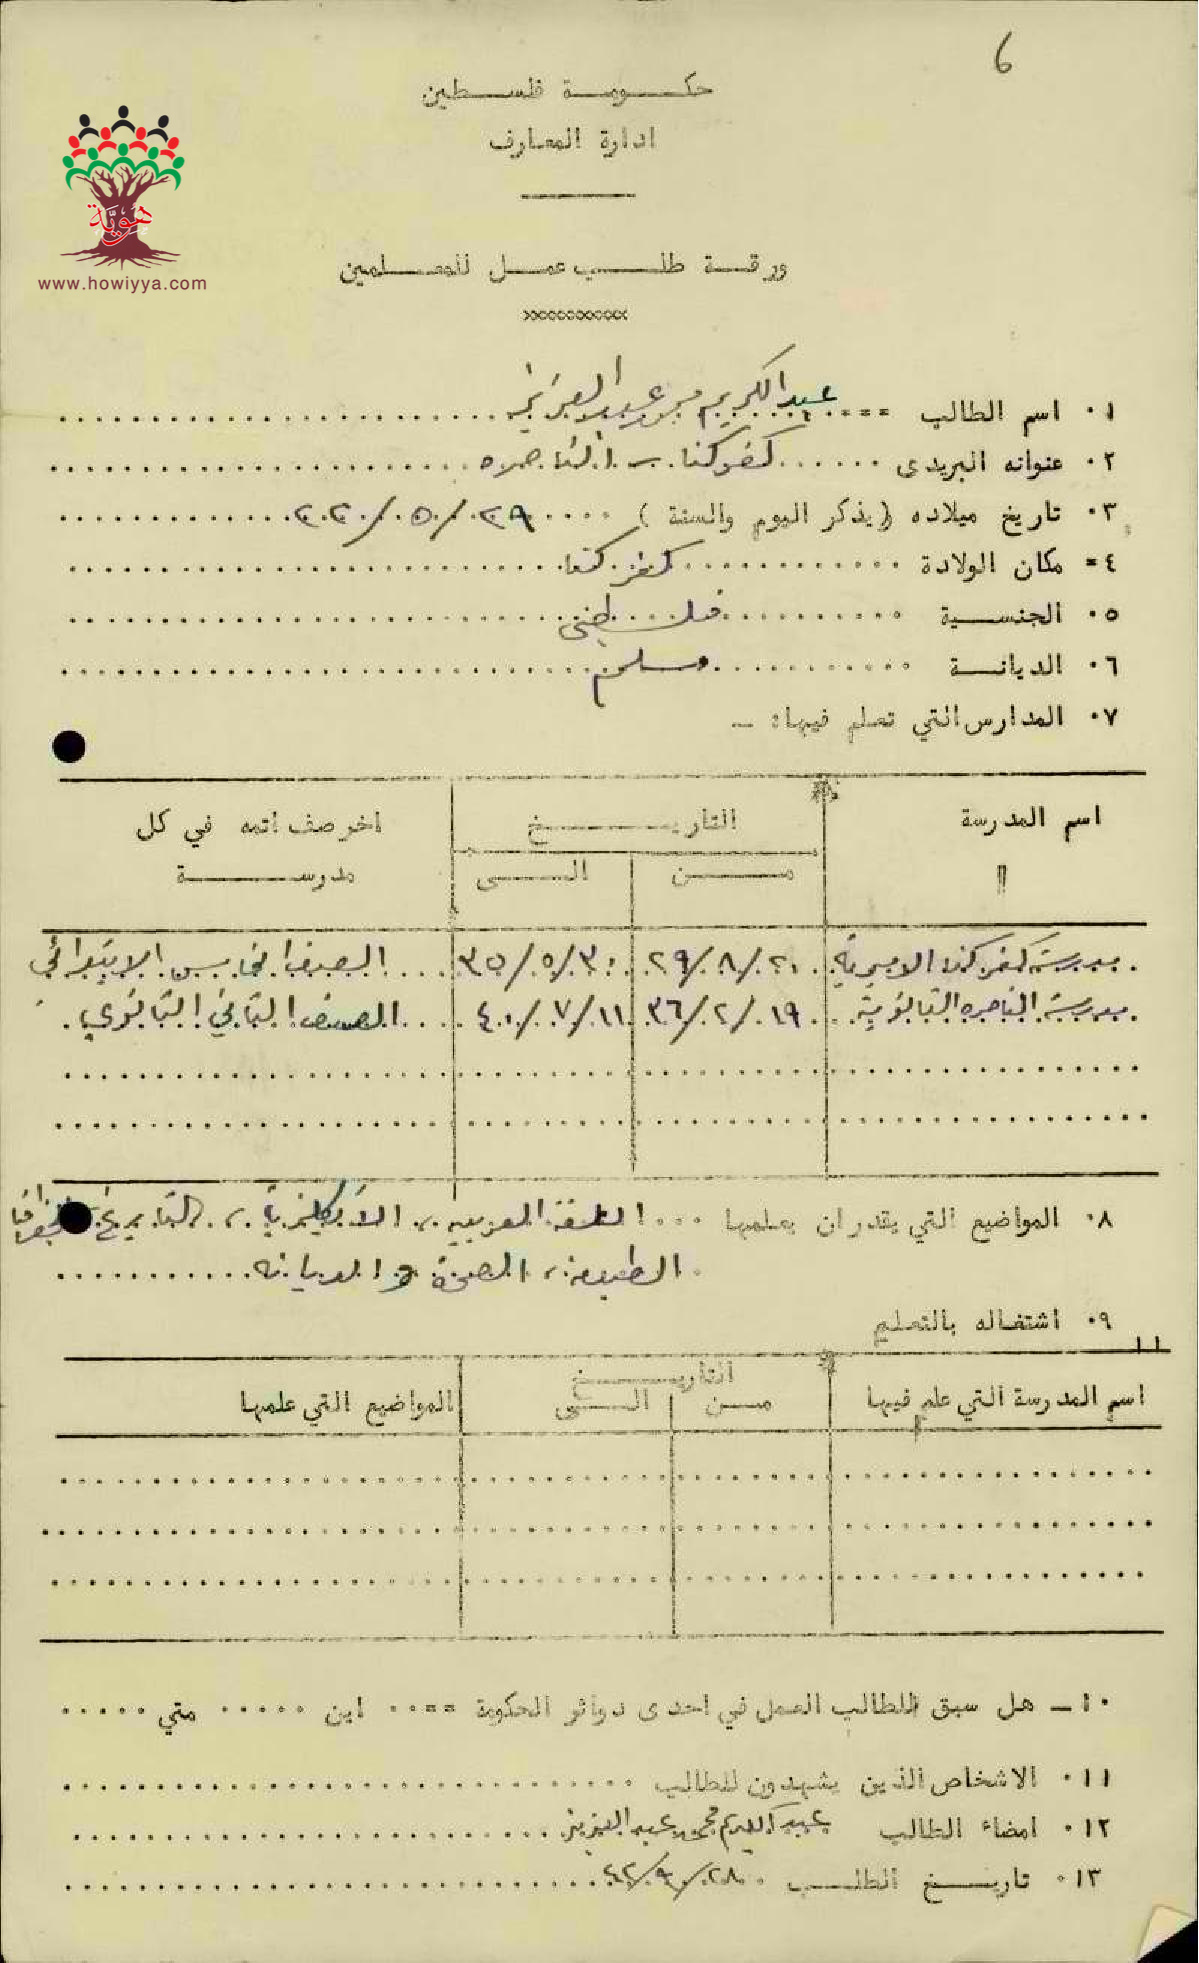 6
حكومة فلسطين
ادارة المعارف
هوية
www.howiyya.com
ورقة طلب عمل للمعلمين
١٠ اسم الطالب عبد الكريم محمد عبد العزيز
٢٠ عنوانه البريدى كفركنا - الناصره
٣٠ تاريخ ميلاده (يذكر اليوم والسنة) ٢٩/٥/
٤= مكان الولادة كفركنا
٥٠ الجنسية فلسطيني
٦٠ الديانة مسلم
٧٠ المدارس التي تعلم فيها: -
اسم المدرسة التاريخ اخر صف اتمه في كل
" من الى مدرسة
مدرسة كفركنا الاميرية ٢٠/٨/٢٩ ٣٠/٥/٣٥ الصف الخامس الابتدائي
مدرسة الناصره الثانوية ١٩/٢/٣٦ ١١/٧/٤٠ الصف الثاني الثانوي
٨٠ المواضيع التي يقدر ان يعلمها اللغة العربيه، الانكليزية، التاريخ، الجغرافيا
الطبيعة، الصحة والديانه
٩٠ اشتغاله بالتعليم
اسم المدرسة التي علم فيها التاريخ المواضيع التي علمها
من الى
١٠- هل سبق للطالب العمل في احدى دوائر الحكومة == اين ..... متي .....
١١٠ الاشخاص الذين يشهدون للطالب
١٢٠ امضاء الطالب عبد الكريم محمد عبد العزيز
١٣٠ تاريخ الطلب ٢٨/٩/٤٢